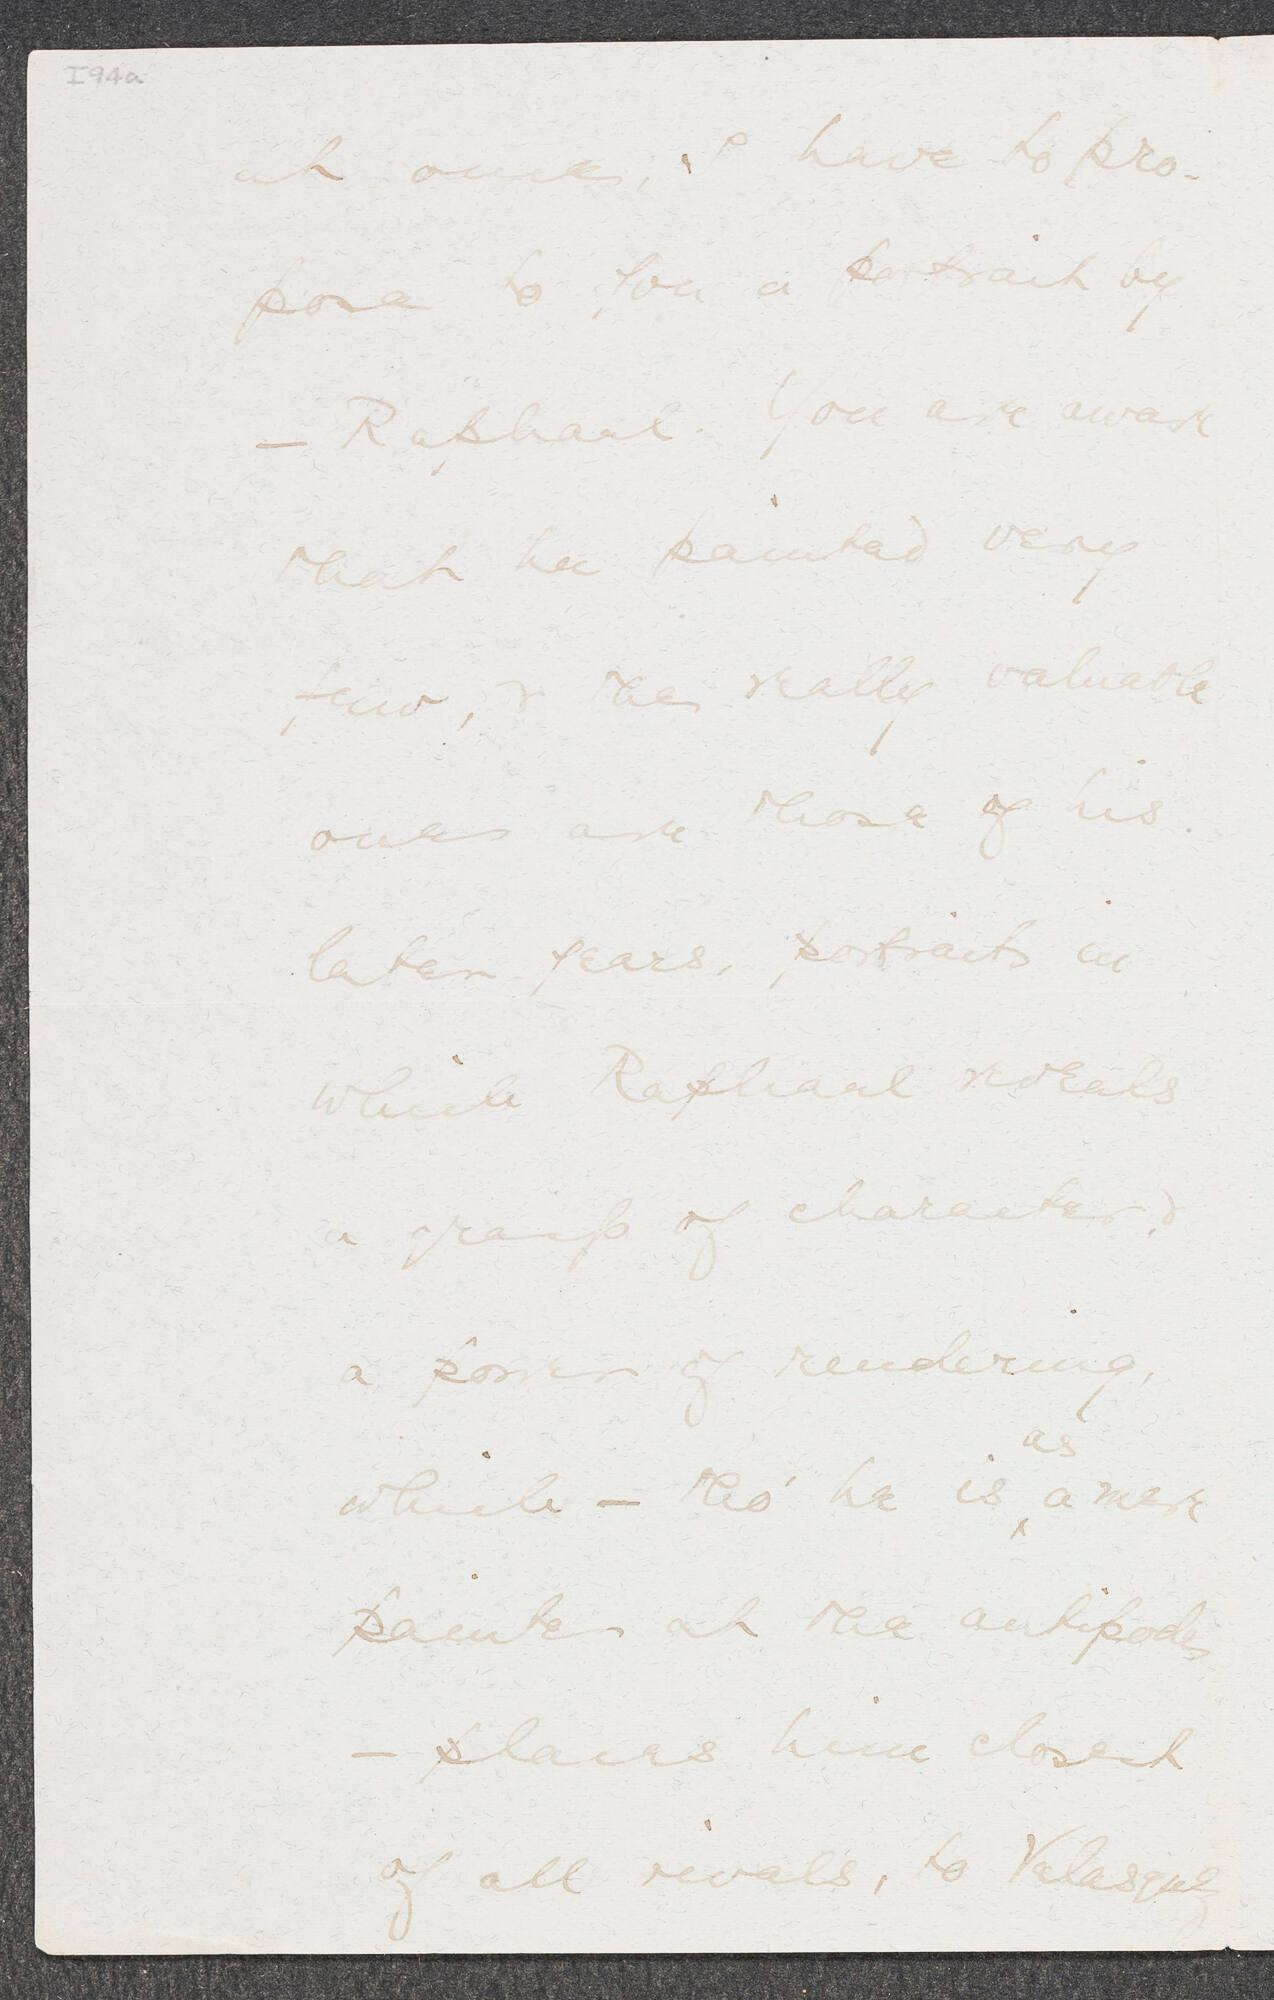 I94a
at once, I have to pro-
pose to you a portrait by
— Raphael. You are aware
that he painted very
few, & the really valuable
ones are those of his
later years, portraits in
which Raphael reveals
a grasp of character, &
a power of rendering,
which — tho' he is as a mere
painter at the antipodes
— places him closest
of all rivals, to Velasquez